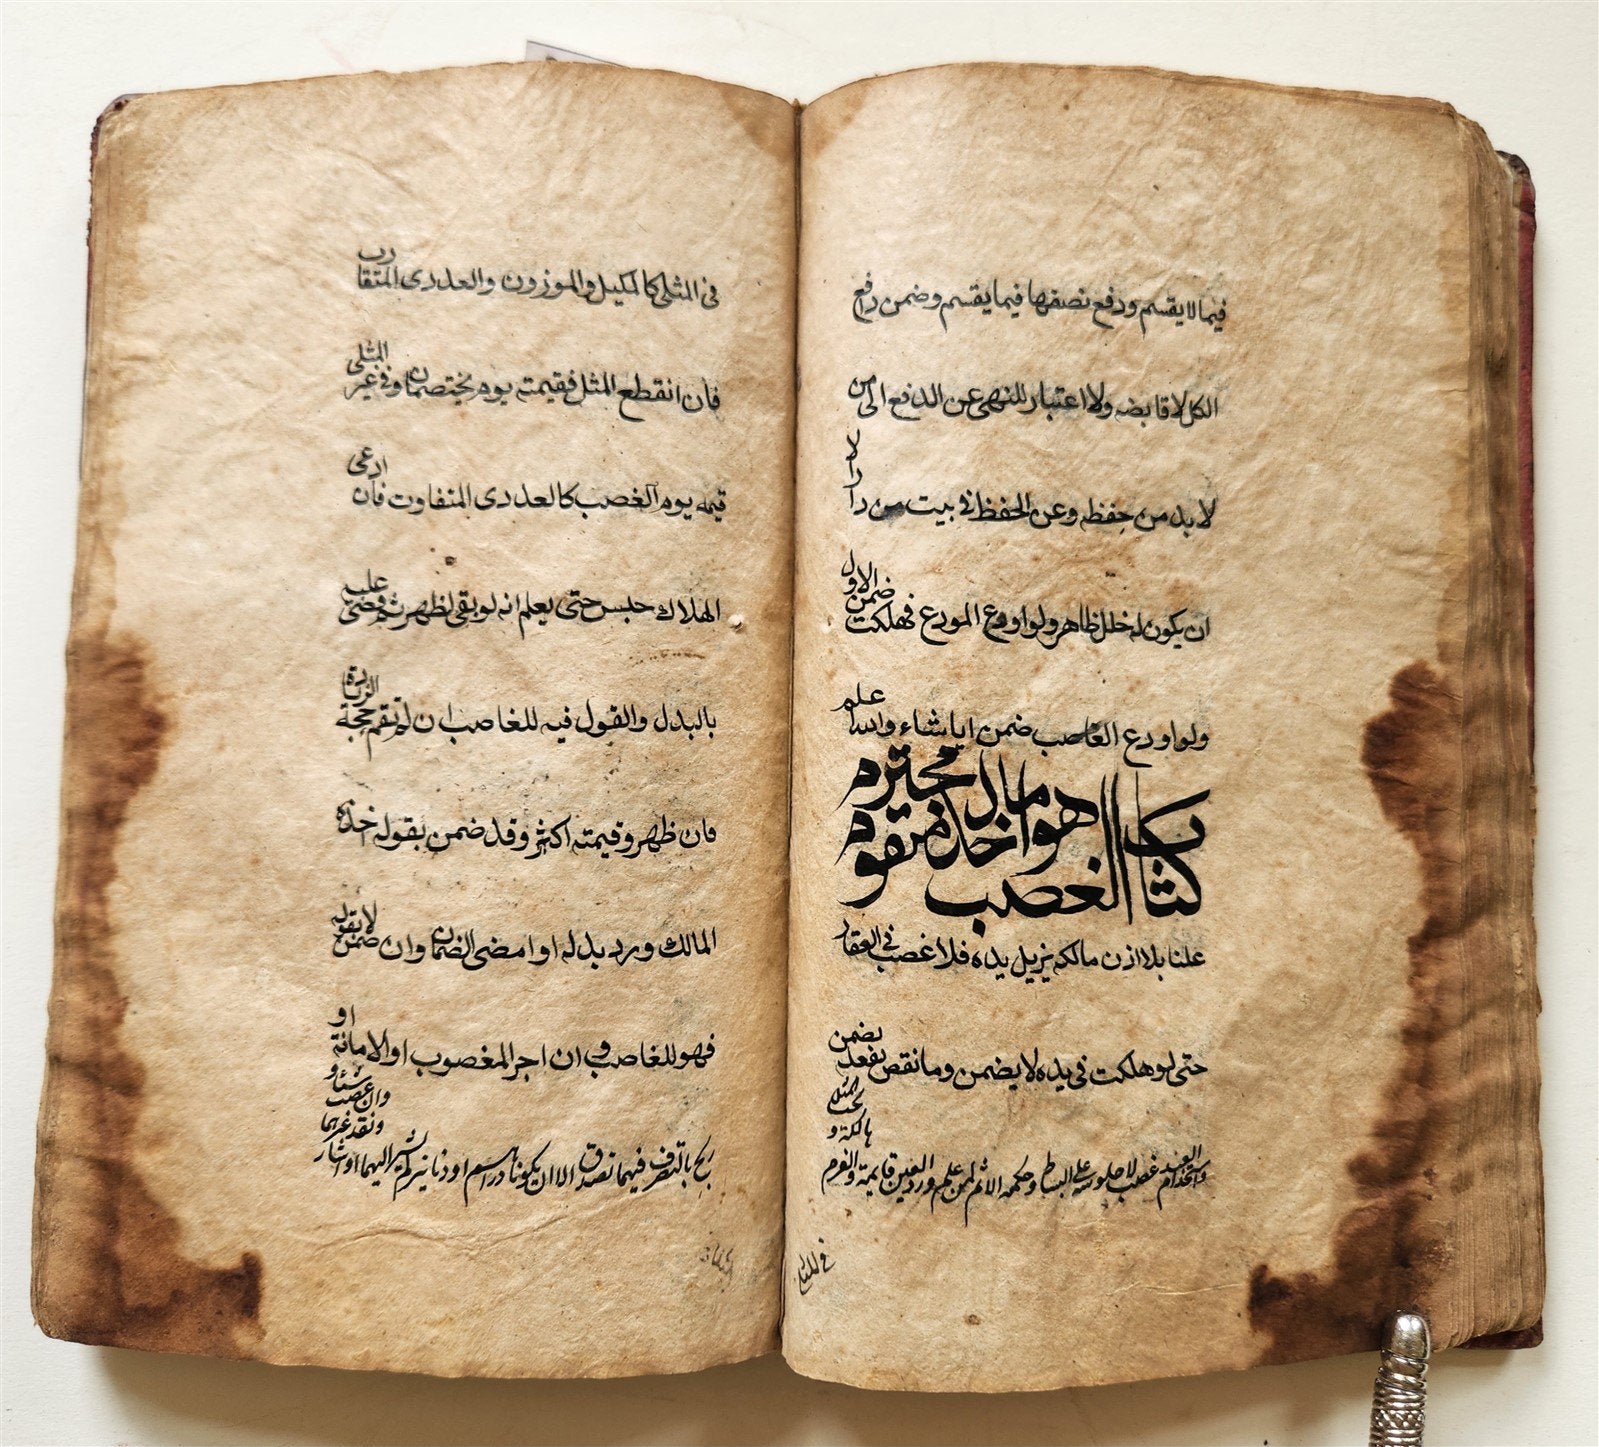 فيما لا يقسم ودفع نصفها فيما يقسم وضمن دافع
الكل لا قابضه ولا اعتبار للنهى عن الدفع الى من
لا بد من حفظه وعن الحفظ فى بيت من دار الا
ان يكون له خلل ظاهر ولو اودع المودع فهلكت ضمن الاول
ولو اودع الغاصب ضمن ايا شاء والله اعلم
كتاب الغصب هو اخذ مال متقوم محترم
علنا بلا اذن مالكه يزيل يده فلا غصب فى العقار
حتى لو هلكت فى يده لا يضمن وما نقص بفعله يضمن
واستخدام العبد غصب لا جلوسه على البساط وحكمه الاثم لمن علم ورد العين قايمة والغرم
هالكة و يجب المثل
فى المثلى
فى المثلى كالمكيل والموزون والعددى المتقارب
فان انقطع المثل فقيمته يوم يختصمان وفى غير المثلى
قيمه يوم الغصب كالعددى المتفاوت فان ادعى
الهلاك حبس حتى يعلم انه لو بقى لظهر ثم قضى عليه
بالبدل والقول فيه للغاصب ان لم تقم حجة الزيادة
فان ظهر وقيمته اكثر وقد ضمن بقوله اخذه
المالك ورد بدله او امضى الضمان وان ضمن لا بقوله
فهو للغاصب وان اجر المغصوب او الامانة او
ربح بالتصرف فيهما تصدق الا ان يكونا دراهم او دنانير لم يشر اليهما او اشار
ونقد غيرهما
وان غصب شيئا و